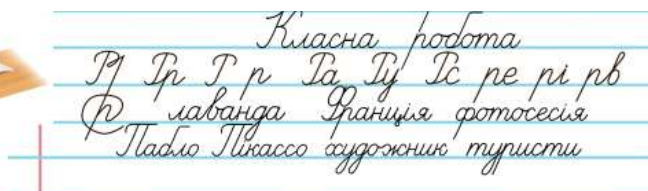 Класна робота
Рр Р р Ра Ру Рс ре рі рв
р лаванда Франція фотосесія
Пабло Пікассо художник туристи